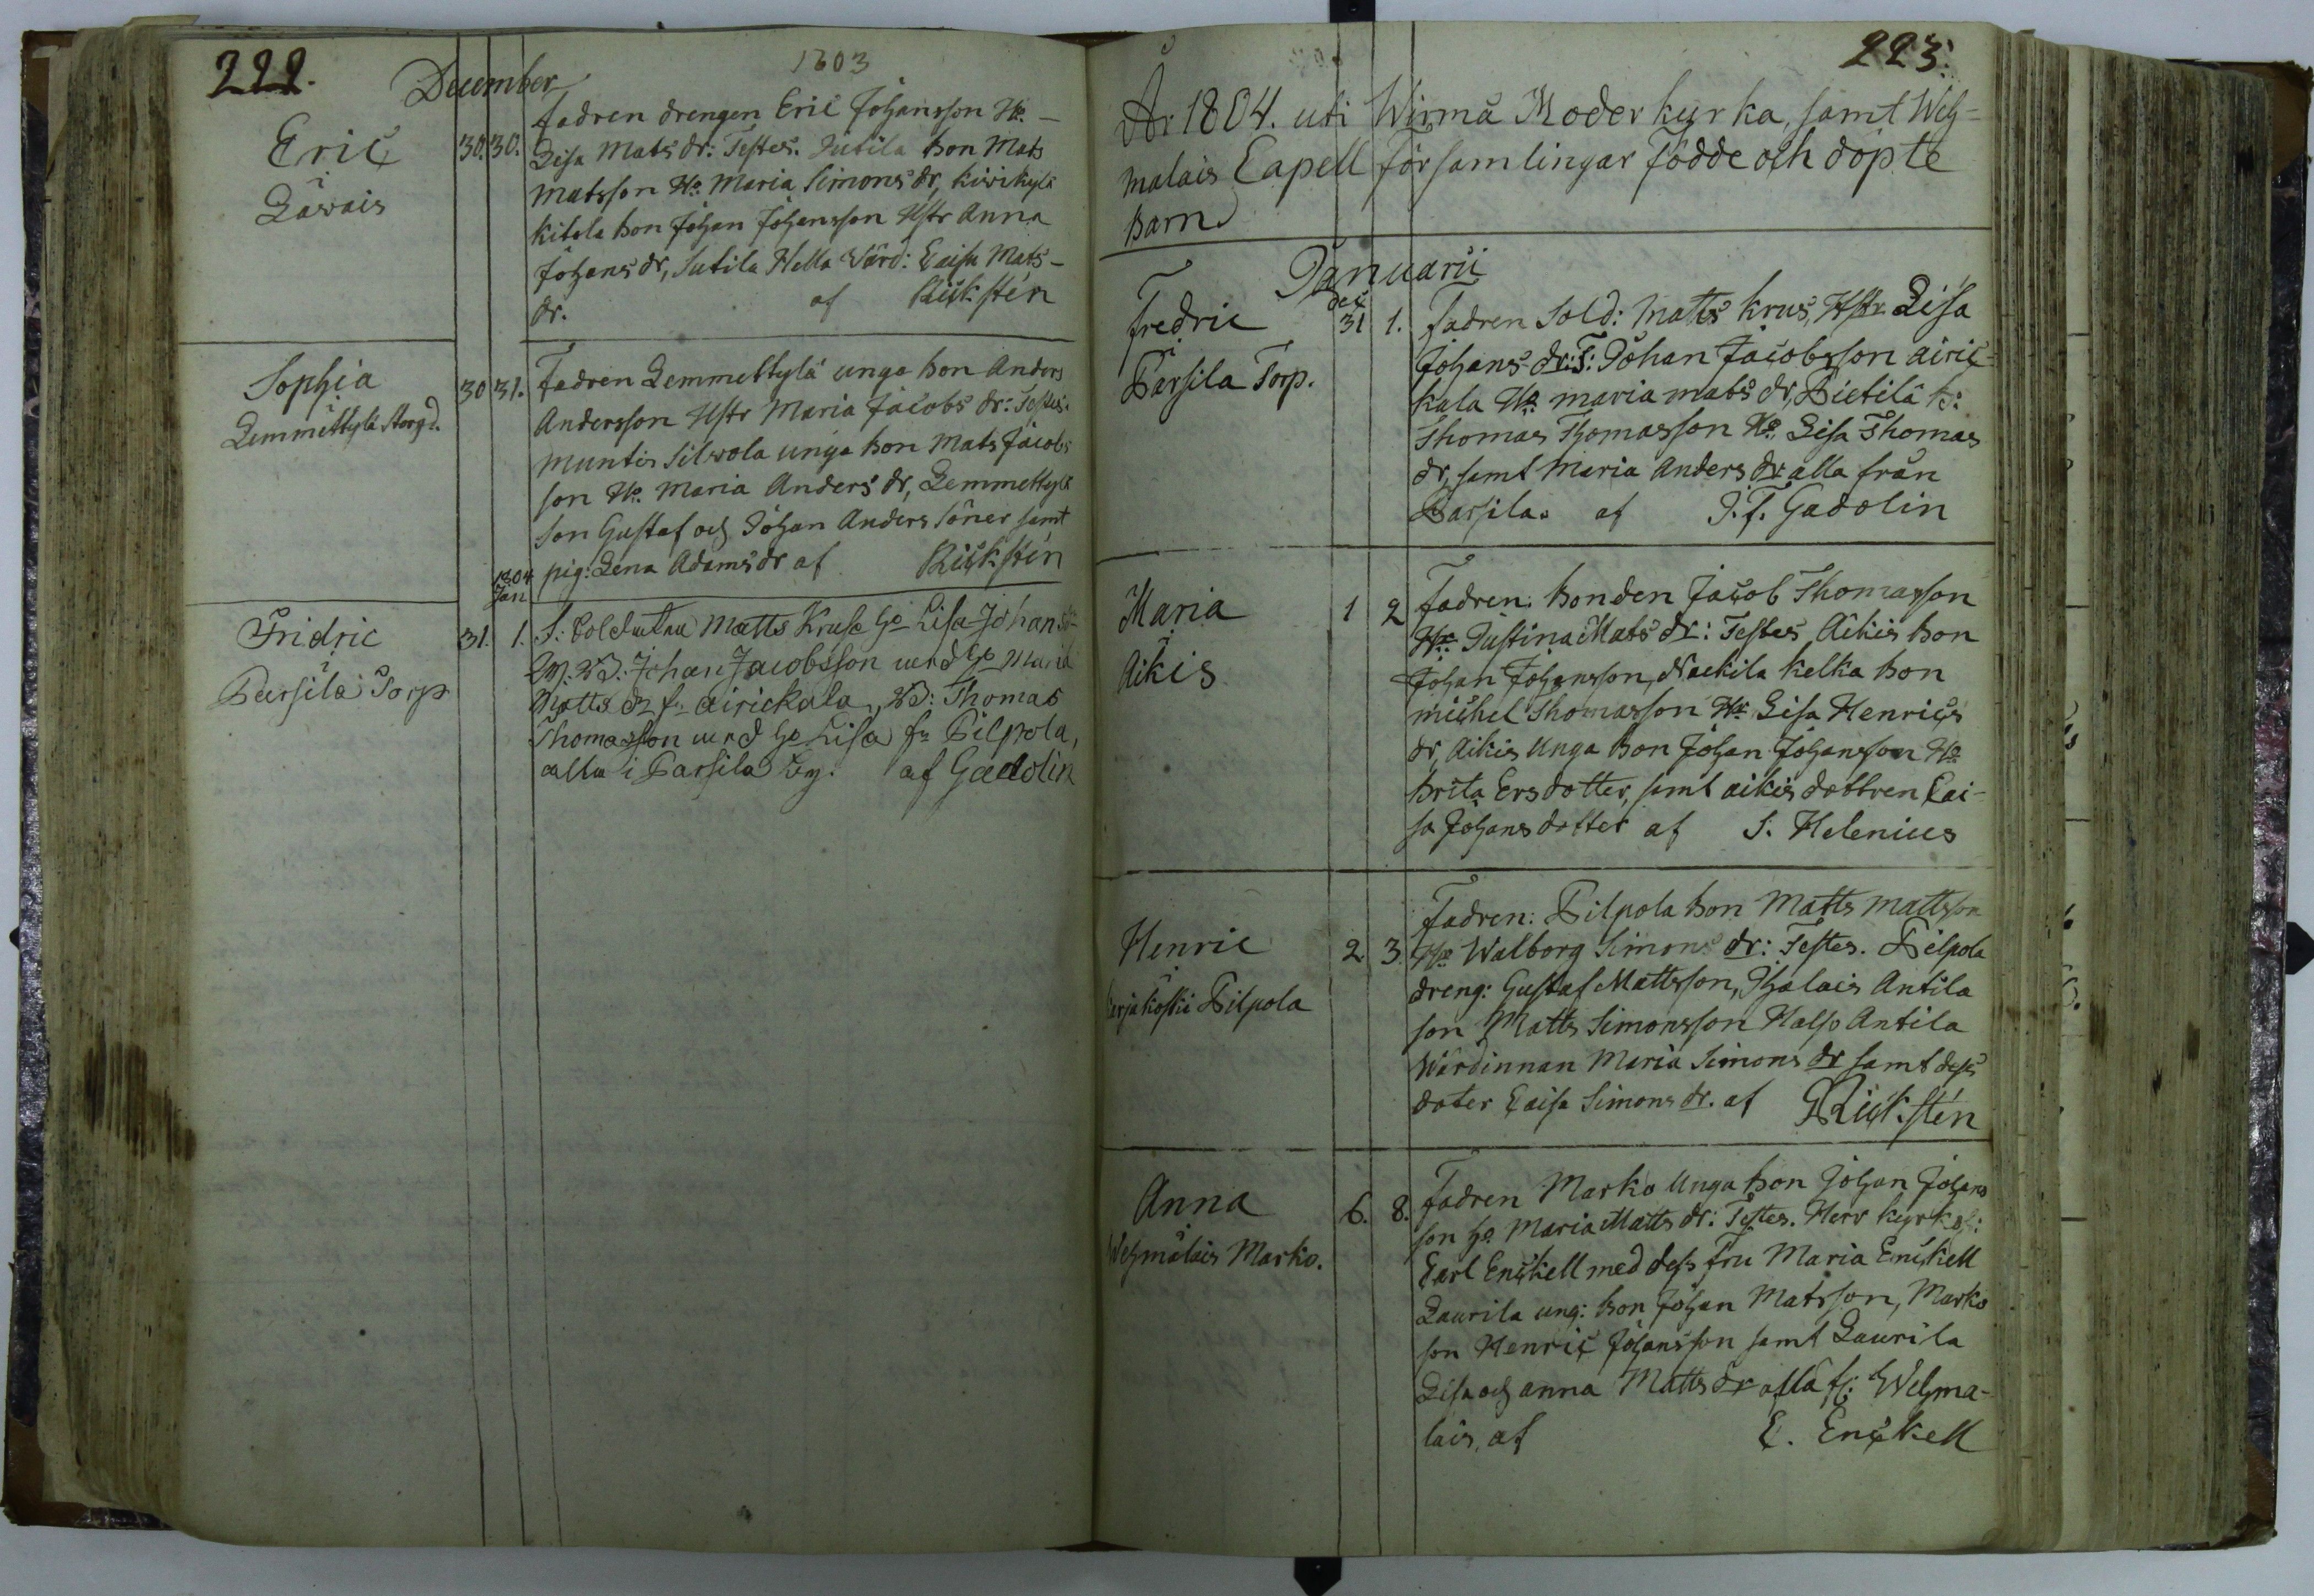 222.
December
1803
Eric
Lawais
30. 30.
Fadren drengen Eric Johansson Ho. –
Lisa Mats dr: Testes. Jutila bon Mats
Matsson Ho. Maria Simons dr, kiwikylä
kitola bon Johan Johansson Hstr Anna
Johans dr, Jutila Hella wärd: Caisa Mats-
dr. af Rickstén
Sophia
Lemmettylä Storgd.
30 31.
Fadren Lemmettylä unga bon Anders
Andersson Hstr Maria Jacobs dr: Testes.
Muntis Silvola unga bon Mats Jacobs
son Ho. Maria Anders dr, Lemmettylä
son Gustaf och Johan Anders söner samt
pig: Lena Adams dr af Rickstén
1804
Jan
Fridric
Parsila Torp
31. 1.
F: Soldaten Matts Kruse Ho Lisa Johans dr
W: Johan Jacobsson med Ho Maria
Matts dr fr. Airickala, Thomas
Thomasson med Ho Lisa fr Pilpola,
alla i Parsila by. af Gadolin
223.
År 1804. uti Wirmå Moder kyrka, samt Weh-
malais Capell församlingar Födde och döpte
Barn
Januarii
Fredric
Parsila Torp.
dec
31 1.
Fadren Sold: Matts Krus, Hstr Lisa
Johans dr: T: Johan Jacobsson Airic-
kala Ho maria mats dr, Pietilä b:
Thomas Thomasson Ho Lisa Thomas
dr, samt Maria Anders dr alla från
Parsila. af J. F. Gadolin
Maria
Aikis
1 2
Fadren: bonden Jacob Thomasson
Ho Justina Mats dr: Testes Aikis bon
Johan Johansson, Nackila kelka bon
michel Thomasson Ho Lisa Henrics
dr, Aikis Unga bon Johan Johansson Ho
Brita Ersdotter, samt aikis dottren Cai-
sa Johansdotter af S. Helenius
Henric
Karjakoski Pilpola
2. 3.
Fadren: Pilpola bon Matts Mattsson
Ho Walborg Simons dr: Testes. Pilpola
dreng: Gustaf Mattsson, Ihalais Antila
son Matts Simonsson Halso Antila
Wärdinnan Maria Simons dr samt dess
doter Caisa Simons dr. af Rickstén
Anna
Wehmalais Marko.
6. 8.
Fadren Marko Unga bon Johan Johans
son Ho Maria Matts dr: Testes. Herr kyrkoh:
Carl Enckell med dess fru Maria Enckell
Laurila ung: bon Johan Matsson, Marko
son Henric Johansson samt Laurila
Lisa och anna Matts dr alla fr: Wehma-
lais, af C. Enckell